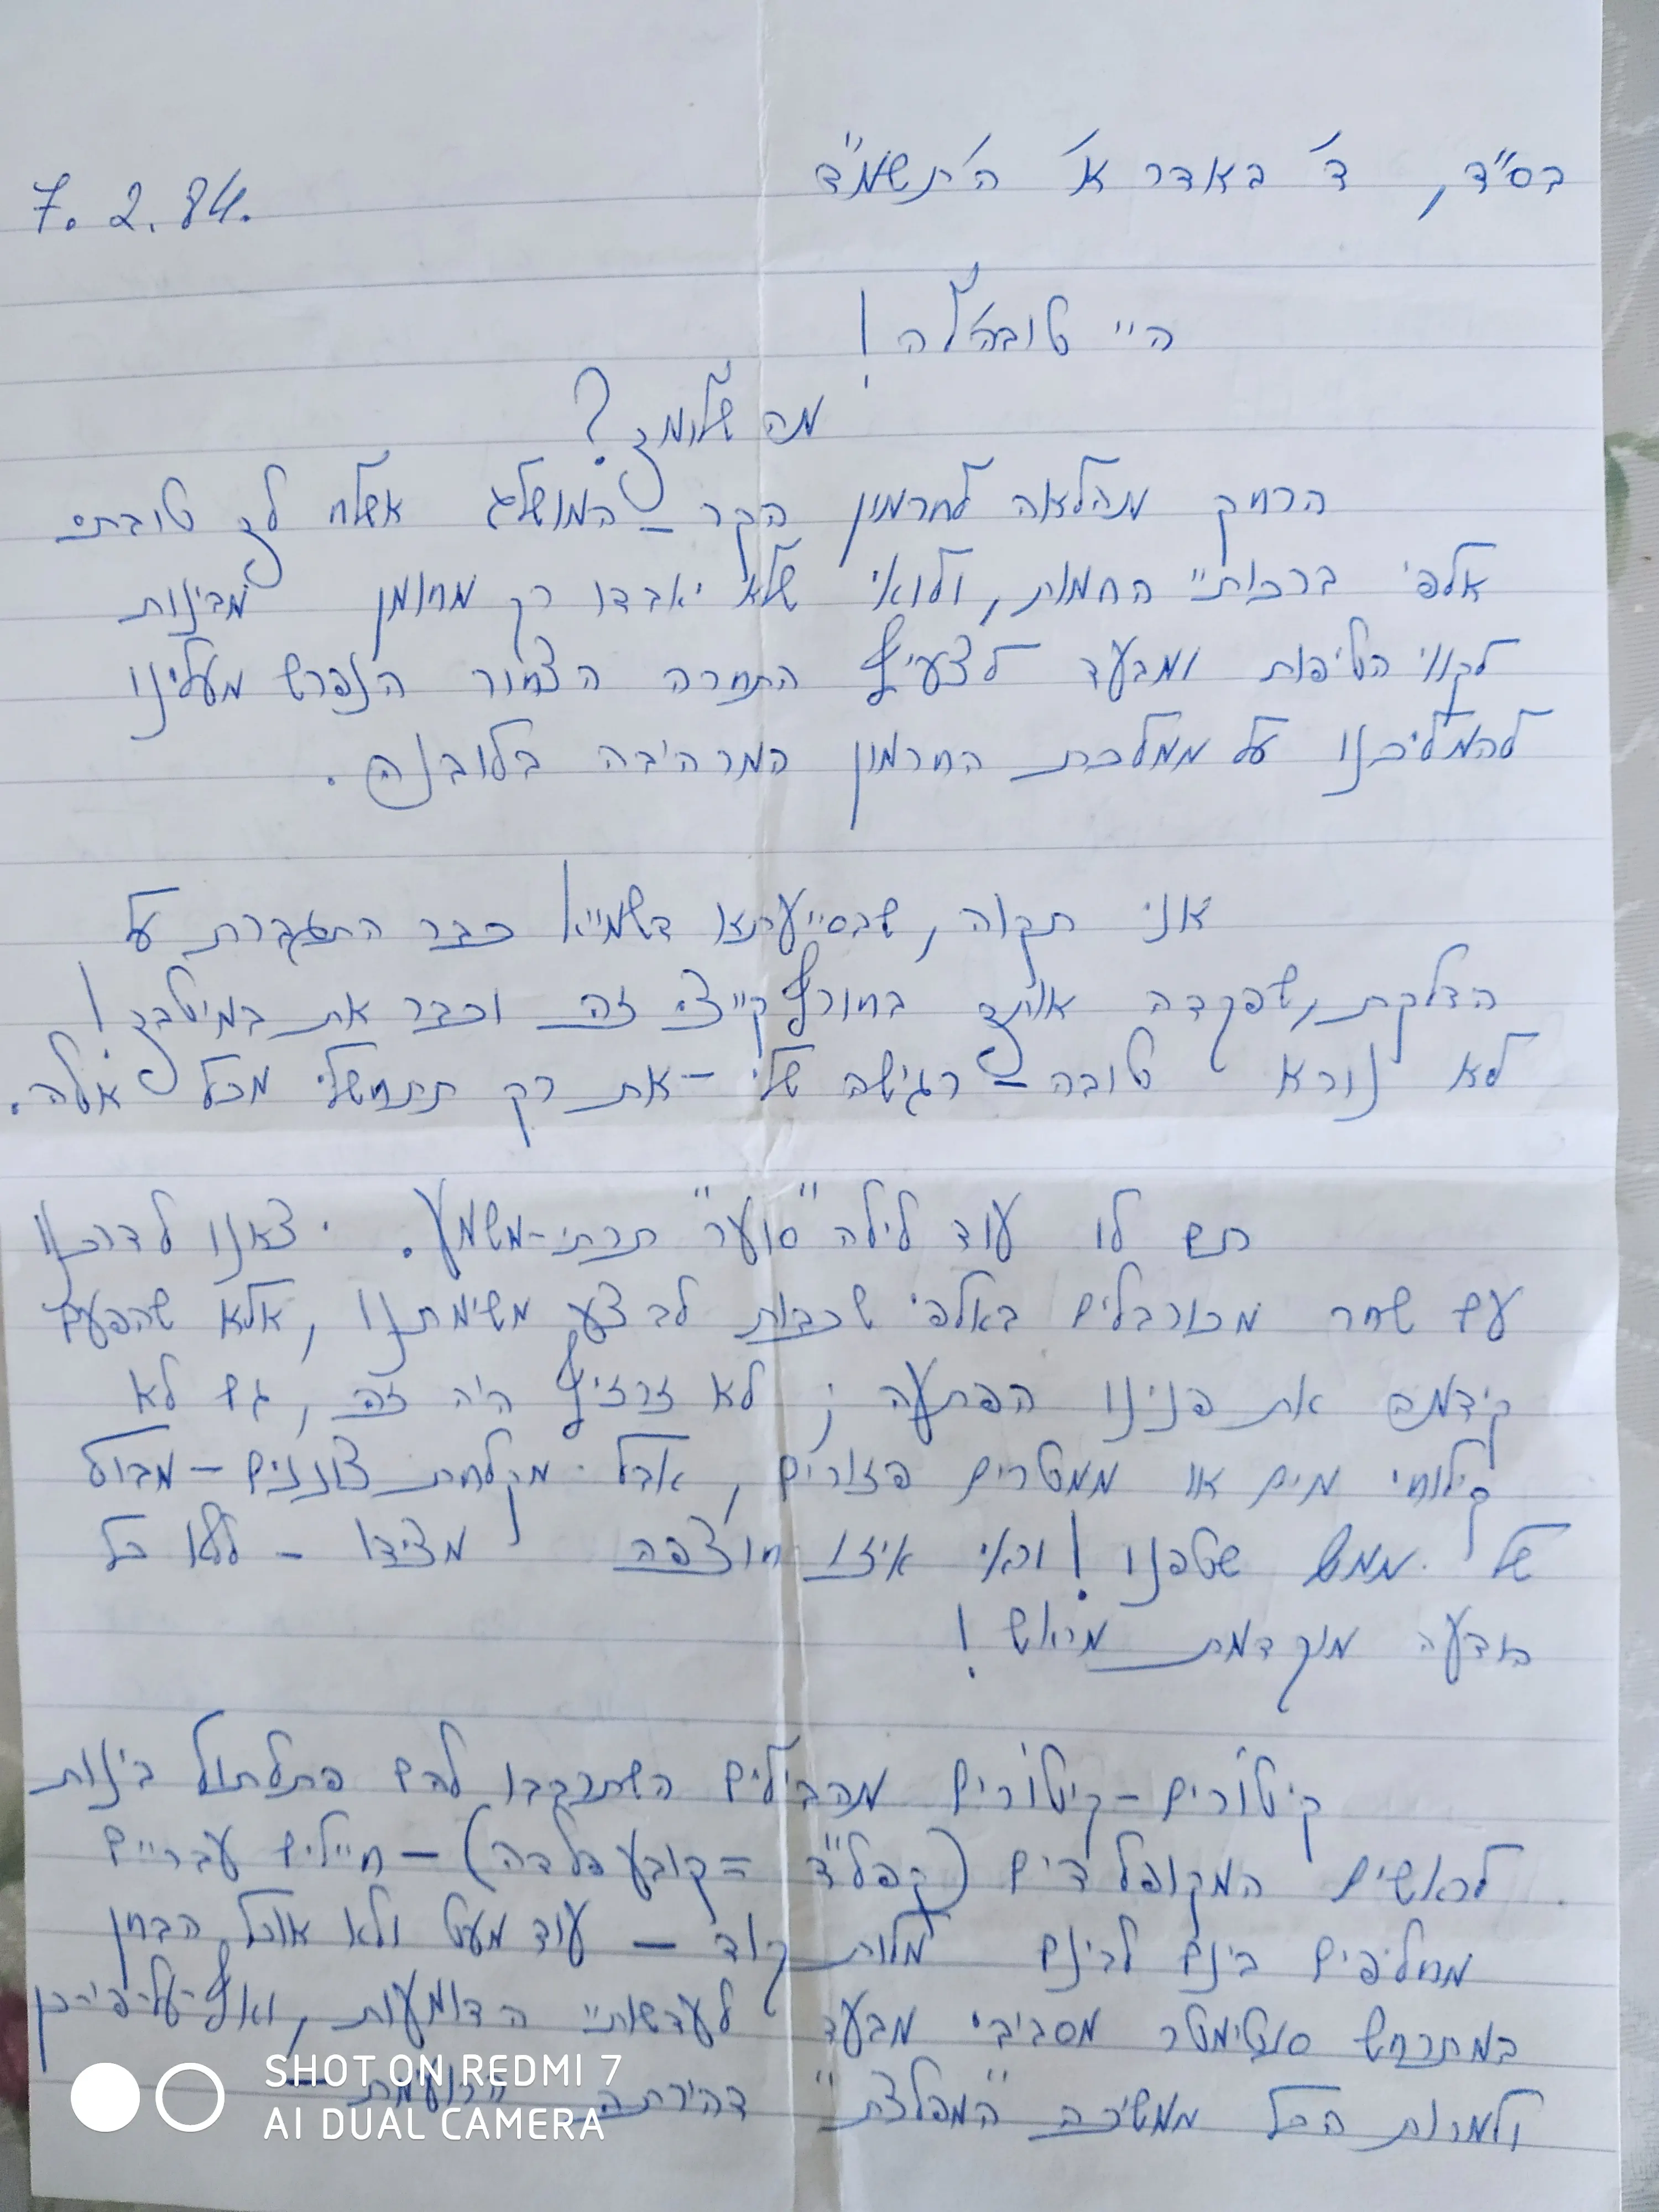 בס"ד, ד' באדר א' ה'תשמ"ד
7. 2. 84.
היי טובהל'ה!
מה שלומך?
הרחק מהלאה לחרמון הקר-המושלג אשלח לך טובתי
אלפי ברכותיי החמות, ולואי שלא יאבדו רק מחומן מבינות
לקווי הטיפות ומבעד לצעיף התחרה הצחור הנפרש מעלינו
להמליכנו על ממלכת החרמון המרהיבה בלובנה.
אני תקוה, שבסייעתא דשמייא כבר התגברת על
הדלקת, שפקדה אותך בחורף קייצי זה וכבר את במיטבך!
לא נורא טובה-רגישה שלי - את רק תתחשלי מכל אלה.
תם לו עוד לילה "סוער" תרתי-משמע. יצאנו לדרכנו
עם שחר מכורבלים באלפי שכבות לבצע משימתנו, אלא שהפעם
קידמה את פנינו הפתעה; לא זרזיף היה זה, גם לא
קילוחי מים או ממטרים פזורים, אבל מקלחת צוננים - מבול
של ממש שטפנו! וראי איזו חוצפה מצידו - ללא כל
הודעה מוקדמת מראש!
קיטורים-קיטורים מהבילים השתרבבו להם פתלתול בינות
לראשים המקופלדים (קפל"ד = קובע פלדה) - חיילים עבריים
מחליפים בינם לבינם מלות קוד - עוד מעט ולא אוכל הבחן
במתרחש סנטימטר מסביבי מבעד לעדשותיי הדומעות, ואף-על-פי-כן
ולמרות הכל ממשיכה "המפלצת" דהירתה הזועמת -
SHOT ON REDMI 7
AI DUAL CAMERA